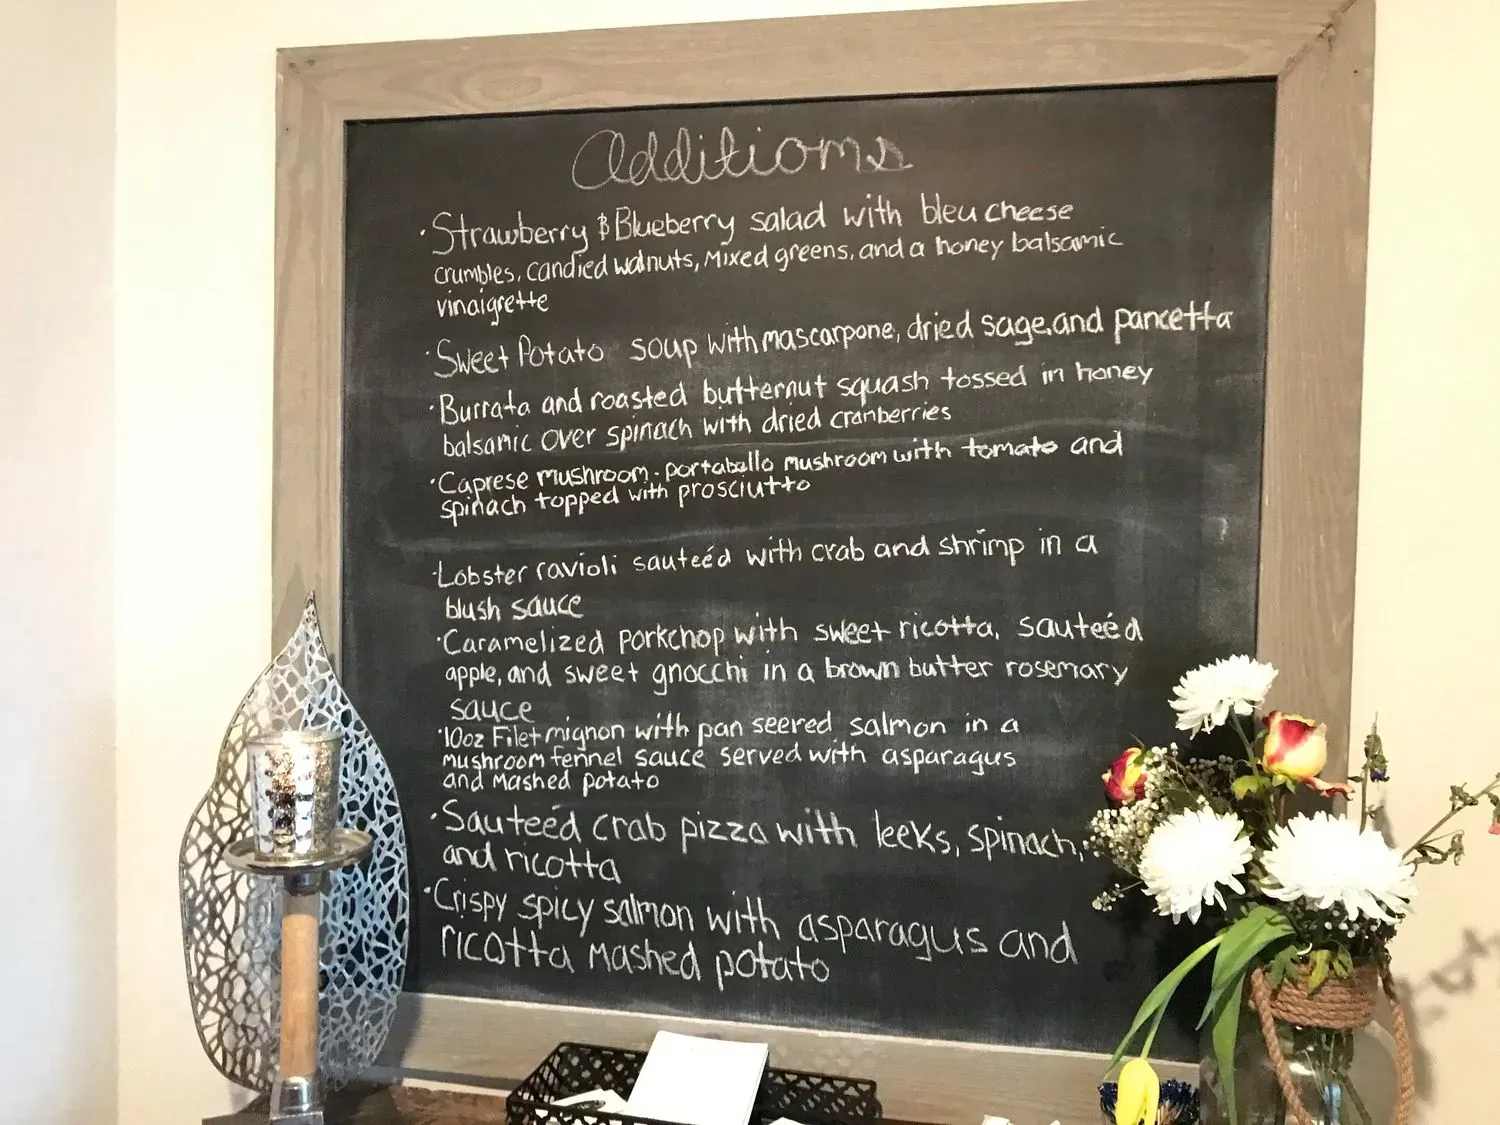 Additions
· Strawberry & Blueberry salad with bleu cheese
crumbles, candied walnuts, mixed greens, and a honey balsamic
vinaigrette
· Sweet Potato soup with mascarpone, dried sage, and pancetta
· Burrata and roasted butternut squash tossed in honey
balsamic over spinach with dried cranberries
· Caprese mushroom - portaballo mushroom with tomato and
spinach topped with prosciutto
· Lobster ravioli sauteéd with crab and shrimp in a
blush sauce
· Caramelized porkchop with sweet ricotta, sauteéd
apple, and sweet gnocchi in a brown butter rosemary
sauce
· 10oz Filet mignon with pan seered salmon in a
mushroom fennel sauce served with asparagus
and mashed potato
· Sauteéd crab pizza with leeks, spinach,
and ricotta
· Crispy spicy salmon with asparagus and
ricotta mashed potato